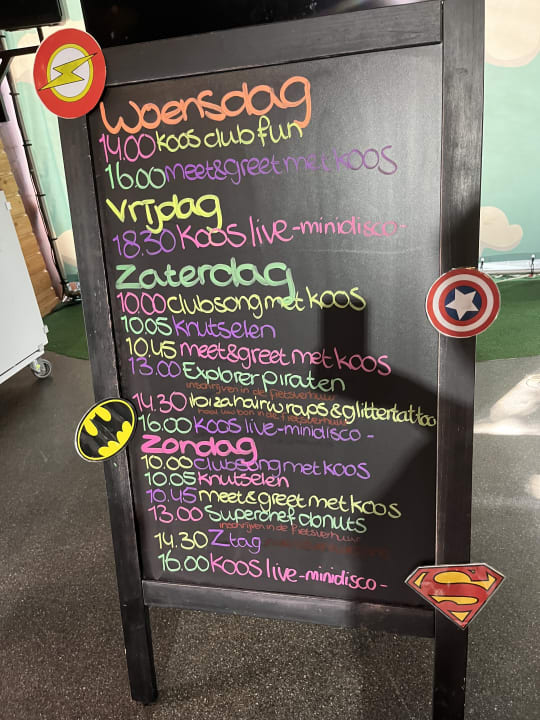 Woensdag
14.00 Koos club fun
16.00 meet&greet met Koos
Vrijdag
18.30 Koos live -minidisco-
Zaterdag
10.00 clubsong met Koos
10.05 Knutselen
10.45 meet&greet met Koos
13.00 Explorer piraten
inschrijven in de fietsverhuur
14.30 ibiza hairwraps & glittertattoo
haal uw bon in de fietsverhuur
16.00 Koos live -minidisco-
Zondag
10.00 clubsong met Koos
10.05 Knutselen
10.45 meet&greet met Koos
13.00 Superchef donuts
inschrijven in de fietsverhuur
14.30 Ztag
16.00 Koos live -minidisco-